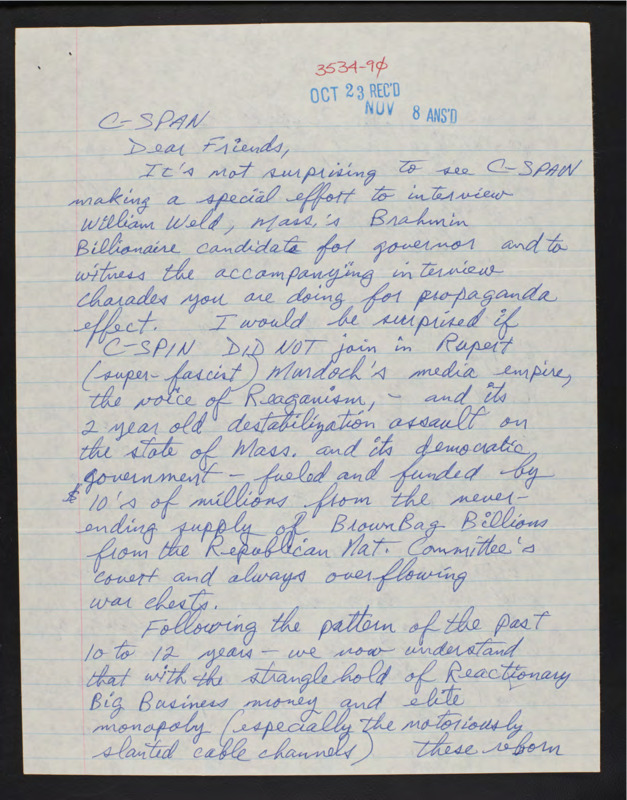 3534-90
OCT 23 REC'D
NOV 8 ANS'D
C-SPAN
Dear Friends,
It's not surprising to see C-SPAIN
making a special effort to interview
William Weld, Mass.'s Brahmin
Billionaire candidate for governor and to
witness the accompanying interview
charades you are doing for propaganda
effect. I would be surprised if
C-SPIN DID NOT join in Rupert
(super-fascist) Murdoch's media empire,
the voice of Reaganism, - and its
2 year old destabilization assault on
the state of Mass. and its democratic
government - fueled and funded by
$ 10's of millions from the never-
ending supply of BrownBag Billions
from the Republican Nat. Committee's
covert and always overflowing
war chests.
Following the pattern of the past
10 to 12 years - we now understand
that with the stranglehold of Reactionary
Big Business money and elite
monopoly (especially the notoriously
slanted cable channels) these reborn